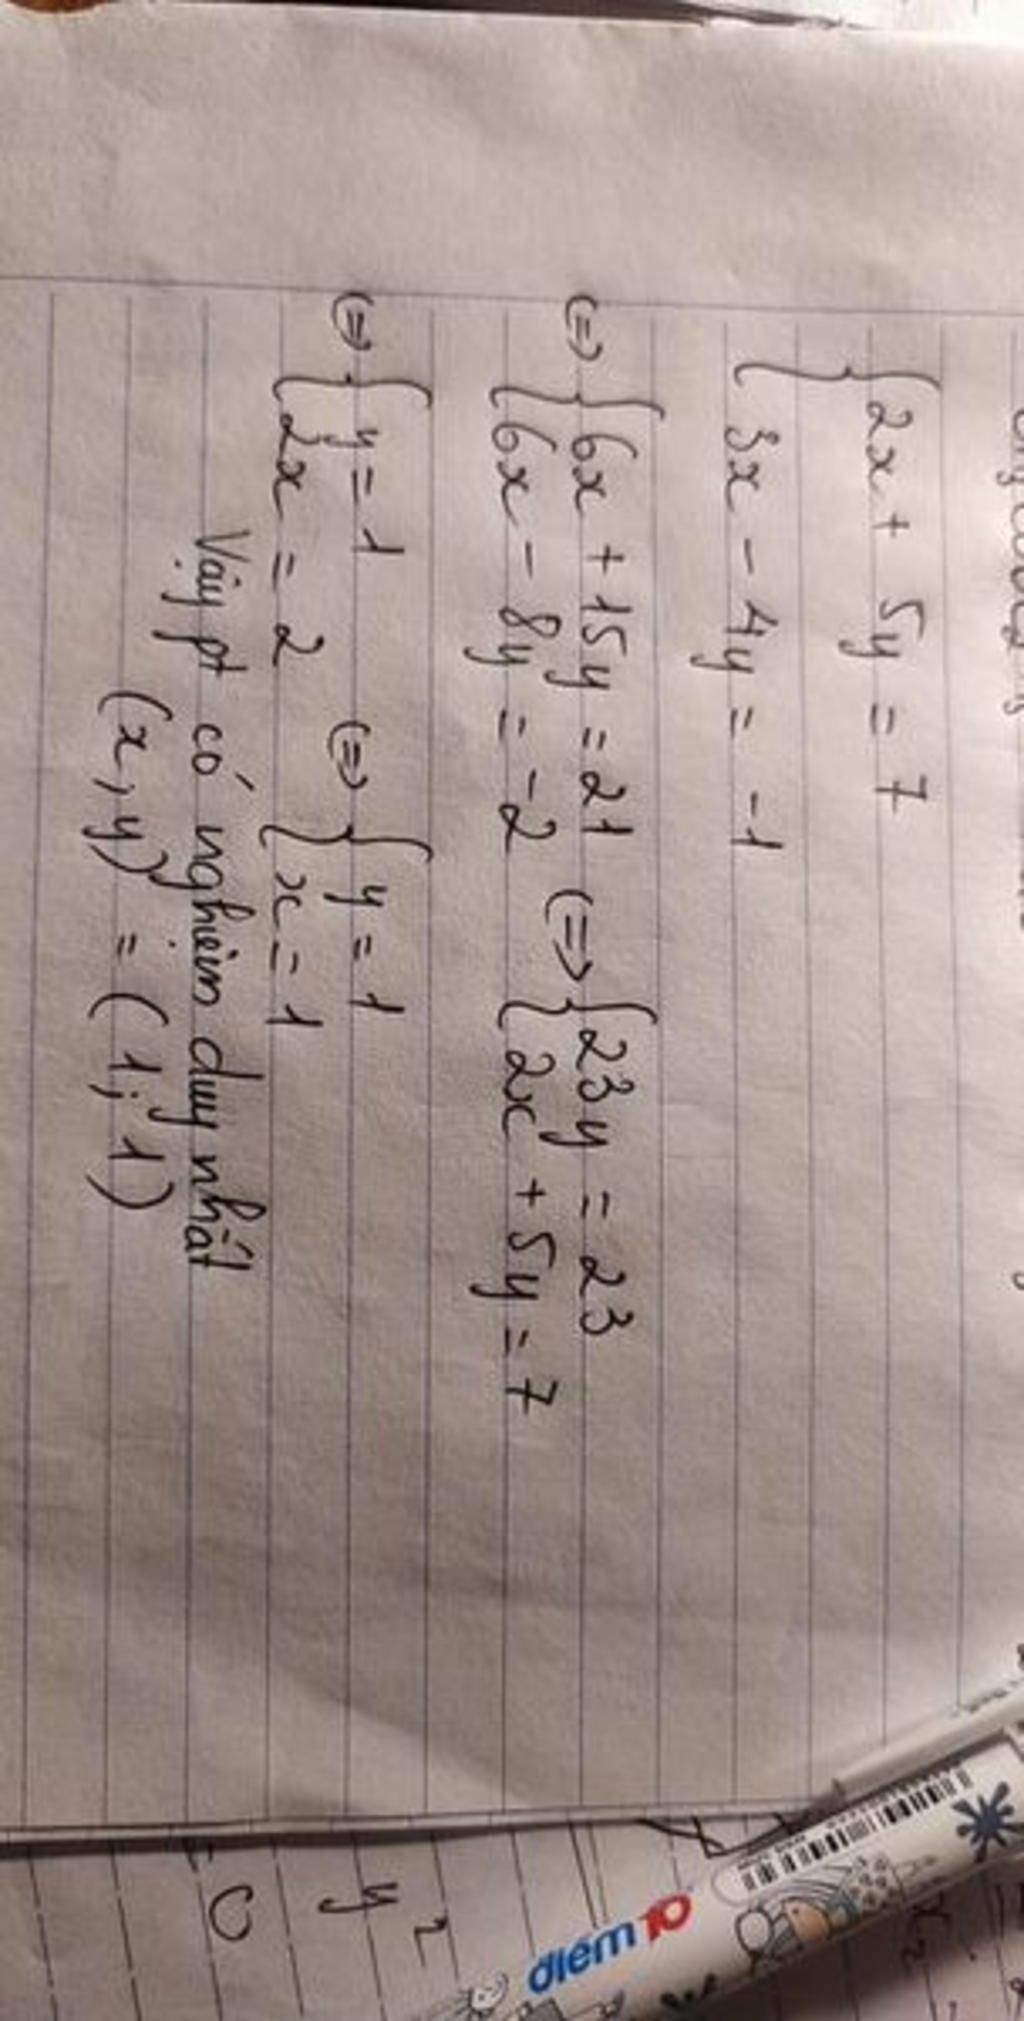 { 2x + 5y = 7
{ 3x - 4y = -1
(=) { 6x + 15y = 21 (=) { 23y = 23
{ 6x - 8y = -2 { 2x + 5y = 7
(=) { y = 1 (=) { y = 1
{ 2x = 2 { x = 1
Vậy pt có nghiệm duy nhất
(x, y) = (1; 1)
y²
điểm10